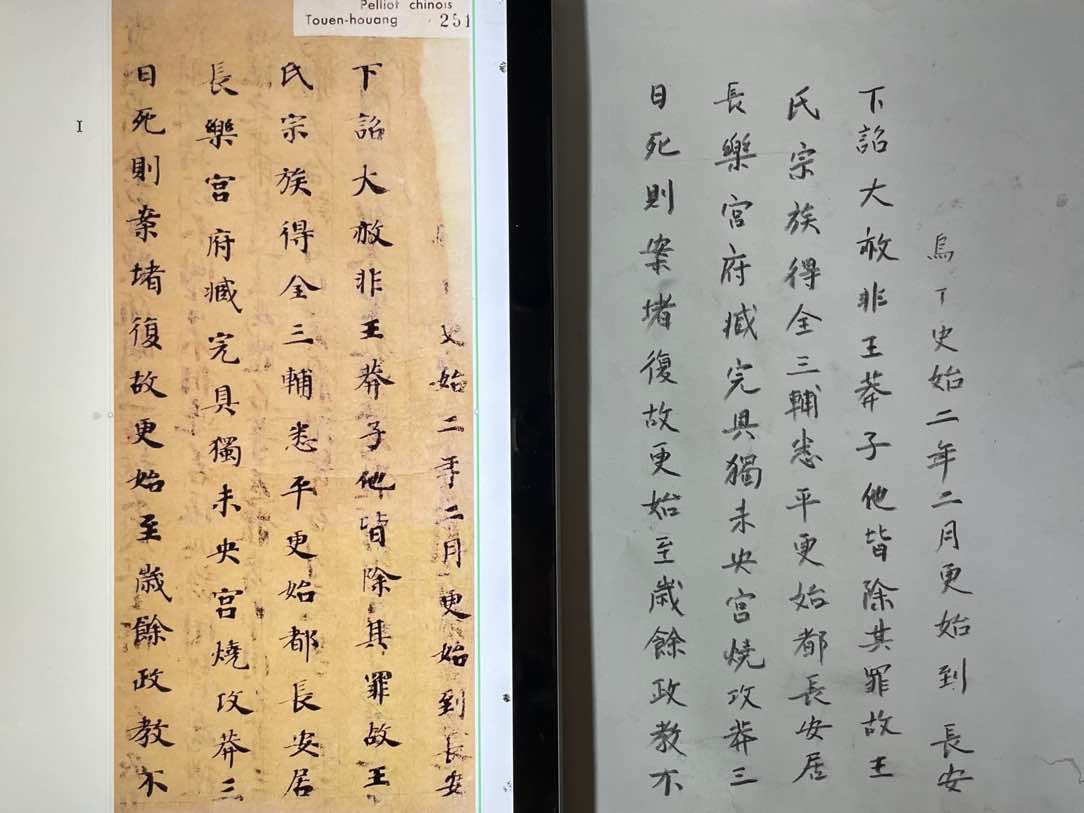 Pelliot chinois
Touen-houang 251
始二年二月更始到長安
下詔大赦非王莽子他皆除其罪故王
氏宗族得全三輔悉平更始都長安居
長樂宮府臧完具獨未央宮燒攻莽三
日死則案堵復故更始至歲餘政教不
烏丅史始二年二月更始到長安
下詔大赦非王莽子他皆除其罪故王
氏宗族得全三輔悉平更始都長安居
長樂宮府臧完具獨未央宮燒攻莽三
日死則案堵復故更始至歲餘政教不